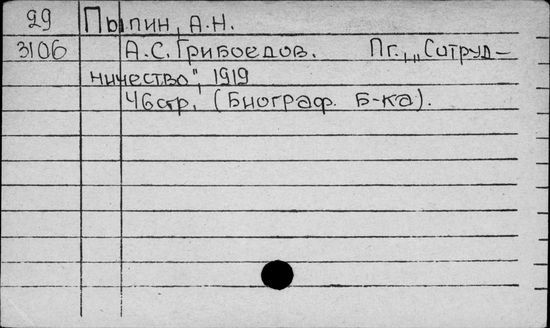 29 Пыпин, А.Н.
3106 А.С. Грибоедов. Пг., „Сотруд-
ничество", 1919
46стр. (Биограф. Б-ка).